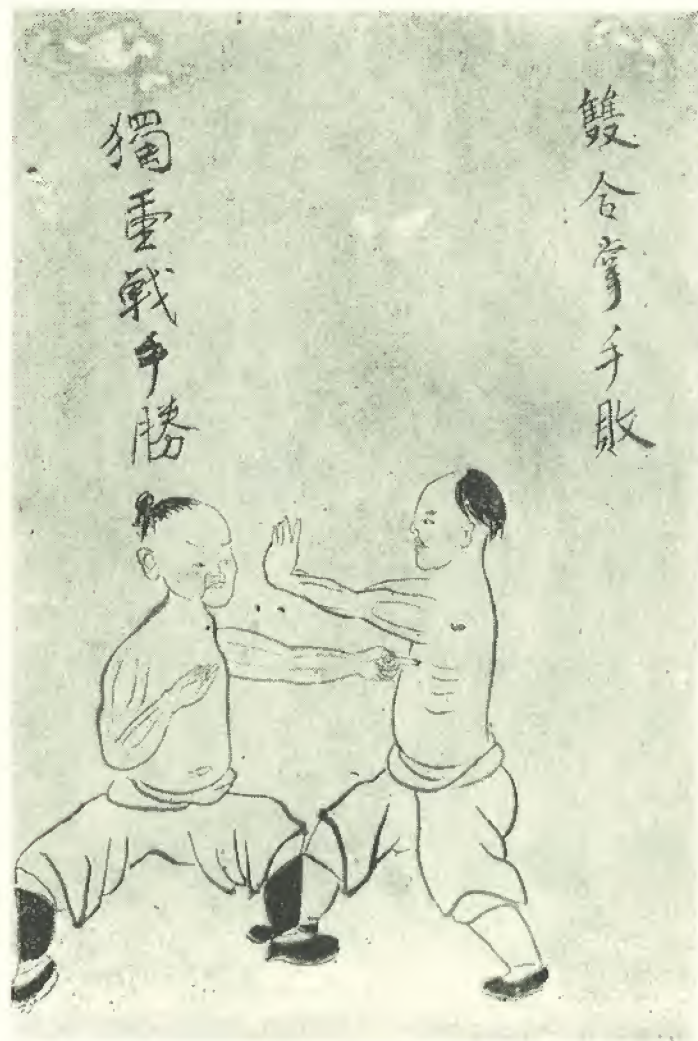 雙合掌手敗
獨戦手勝